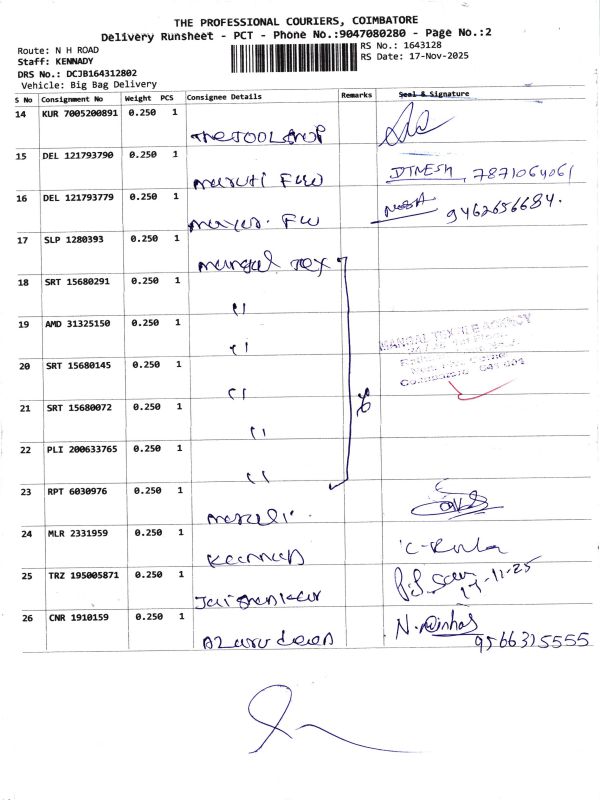 THE PROFESSIONAL COURIERS, COIMBATORE
Delivery Runsheet - PCT - Phone No.:9047080280 - Page No.:2
Route: N H ROAD
RS No.: 1643128
Staff: KENNADY
RS Date: 17-Nov-2025
DRS No.: DCJB164312802
Vehicle: Big Bag Delivery
S No Consignment No Weight PCS Consignee Details Remarks Seal & Signature
14 KUR 7005200891 0.250 1
The TOOL Shop
15 DEL 121793790 0.250 1
maruti FW DINESH, 7871064061
16 DEL 121793779 0.250 1
FW 9462656684.
17 SLP 1280393 0.250 1
mangal Tex
18 SRT 15680291 0.250 1
"
19 AMD 31325150 0.250 1
"
MANGAL TEXTILE AGENCY
20 SRT 15680145 0.250 1
"
21 SRT 15680072 0.250 1
"
22 PLI 200633765 0.250 1
"
23 RPT 6030976 0.250 1
24 MLR 2331959 0.250 1
25 TRZ 195005871 0.250 1
17-11-25
26 CNR 1910159 0.250 1
9566325555